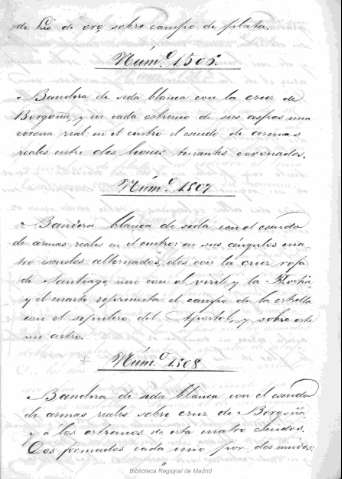 de Lis de oro sobre campo de plata.
Núm.º 1506.
Bandera de seda blanca con la cruz de
Borgoña, y en cada extremo de sus aspas una
corona real en el centro el escudo de armas
reales entre dos leones tenantes coronados.
Núm.º 1507
Bandera blanca de seda con el escudo
de armas reales en el centro; en sus ángulos cua-
tro escudos alternados, dos con la cruz roja
de Santiago, uno con el y la
y el cuarto representa el campo de la estrella
con el sepulcro del Apóstol, y sobre este
un astro.
Núm.º 1508
Bandera de seda blanca con el escudo
de armas reales sobre cruz de Borgoña,
y a los extremos de esta cuatro escudos.
Dos formados cada uno por dos
Biblioteca Regional de Madrid